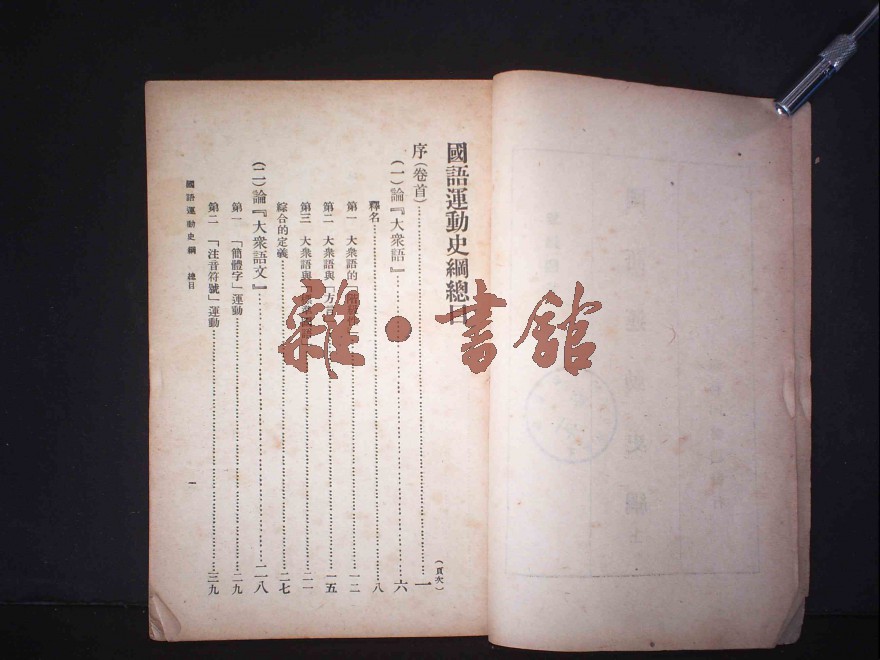 國語運動史綱總目
(頁次)
序(卷首)……一
(一)論『大衆語』……六
釋名……八
第一 大衆語的……一二
第二 大衆語與「方言……一五
第三 大衆語與……二一
綜合的定義……二七
(二)論『大衆語文』……二八
第一 「簡體字」運動……二九
第二 「注音符號」運動……三九
國語運動史綱 總目
一
雜·書館